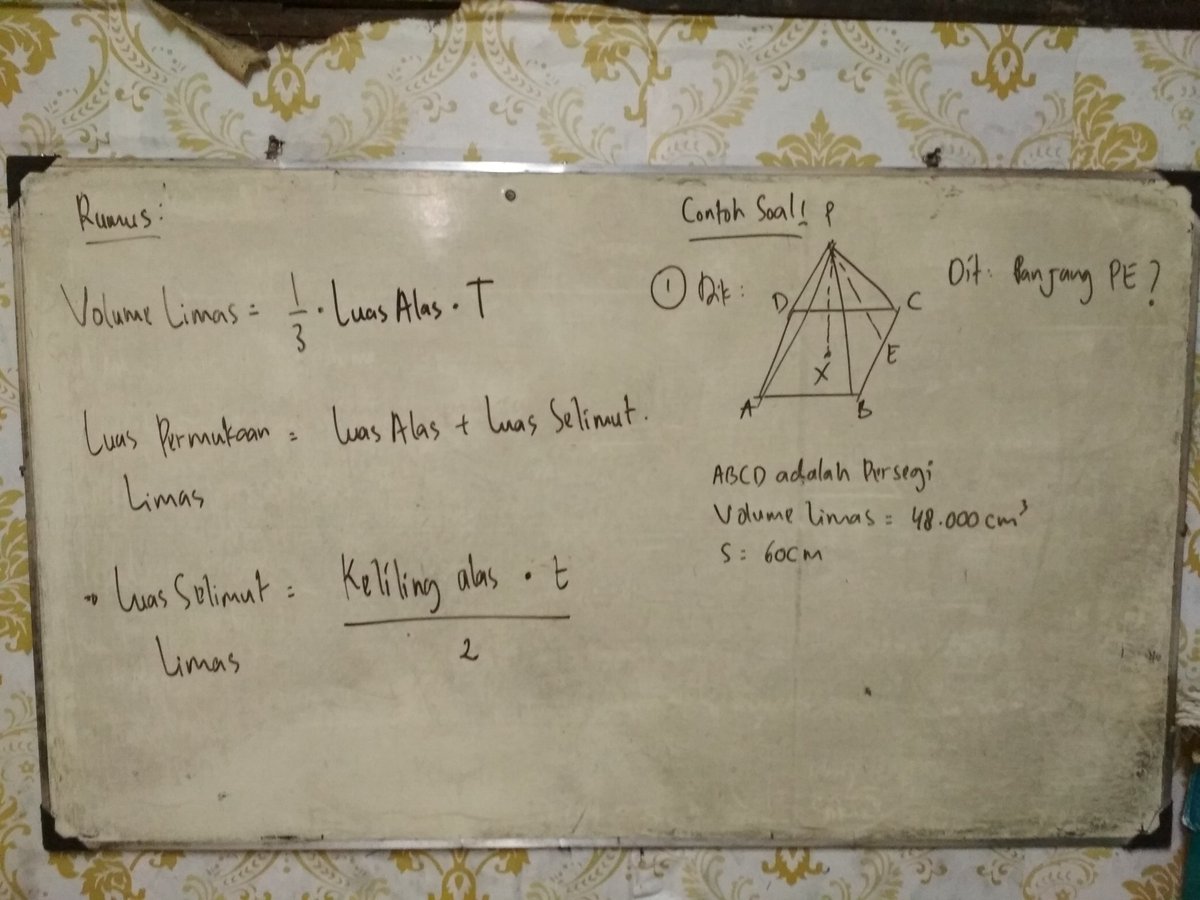 Rumus:
Volume Limas = 1/3 · Luas Alas · T
Luas Permukaan = Luas Alas + Luas Selimut.
Limas
→ Luas Selimut = Keliling alas · t / 2
Limas
Contoh Soal!
① Dik:
P
D
C
E
X
A
B
Dit: Panjang PE?
ABCD adalah Persegi
Volume limas = 48.000 cm³
S = 60cm